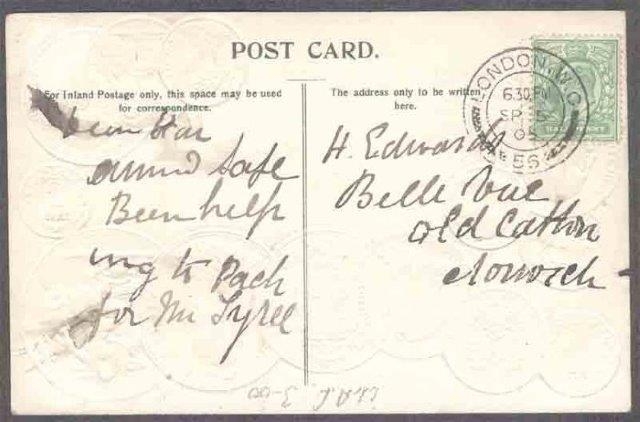 POST CARD.
For Inland Postage only, this space may be used
for correspondence.
The address only to be written
here.
LONDON. W.C
6.30 PM
SP 5
05
56
HALFPENNY
arrived safe
Been help
ing to Pack
for Mr Tyrell
H. Edwards
Belle Vue
old Catton
Norwich
3-00